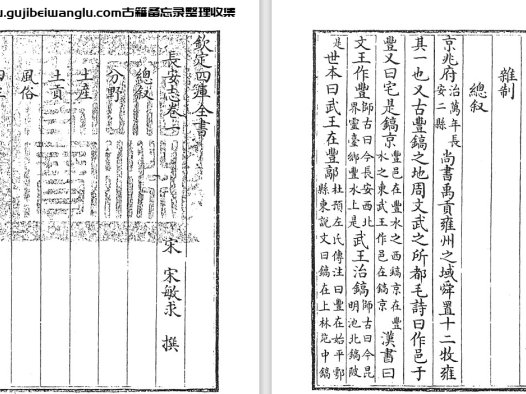 u.gujibeiwanglu.com古籍备忘录整理收集
欽定四庫全書
長安志卷一
宋 宋敏求 撰
總叙
分野
土産
土貢
風俗
雜制
總叙
京兆府治萬年長安二縣尚書禹貢雍州之域舜置十二牧雍
其一也又古豐鎬之地周文武之所都毛詩曰作邑于
豐又曰宅是鎬京豐邑在豐水之西鎬京在豐水之東武王作邑在鎬京漢書曰
文王作豐師古曰今長安西北界靈臺鄉豐水上是武王治鎬師古曰今昆明池北鎬陂
是世本曰武王在豐鄗杜預左氏傳注曰豐在始平鄠縣東說文曰鎬在上林苑中鎬